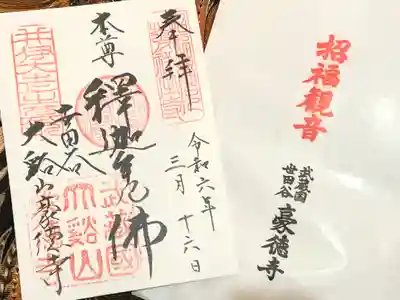 奉拝
令和六年
三月十六日
本尊
釋迦牟尼佛
世田谷
大谿山豪徳寺
武蔵國
大谿山
招福観音
武蔵国
世田谷
豪徳寺